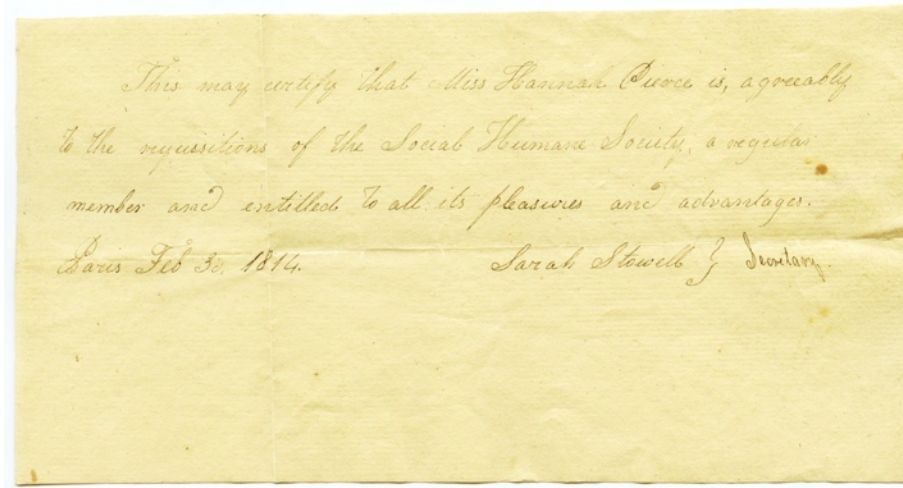 This may certify that Miss Hannah Pierce is, agreeably
to the requissitions of the Social Humane Society, a regular
member and entitled to all its pleasures and advantages.
Paris Feb 3d. 1814. Sarah Stowell } Secretary.